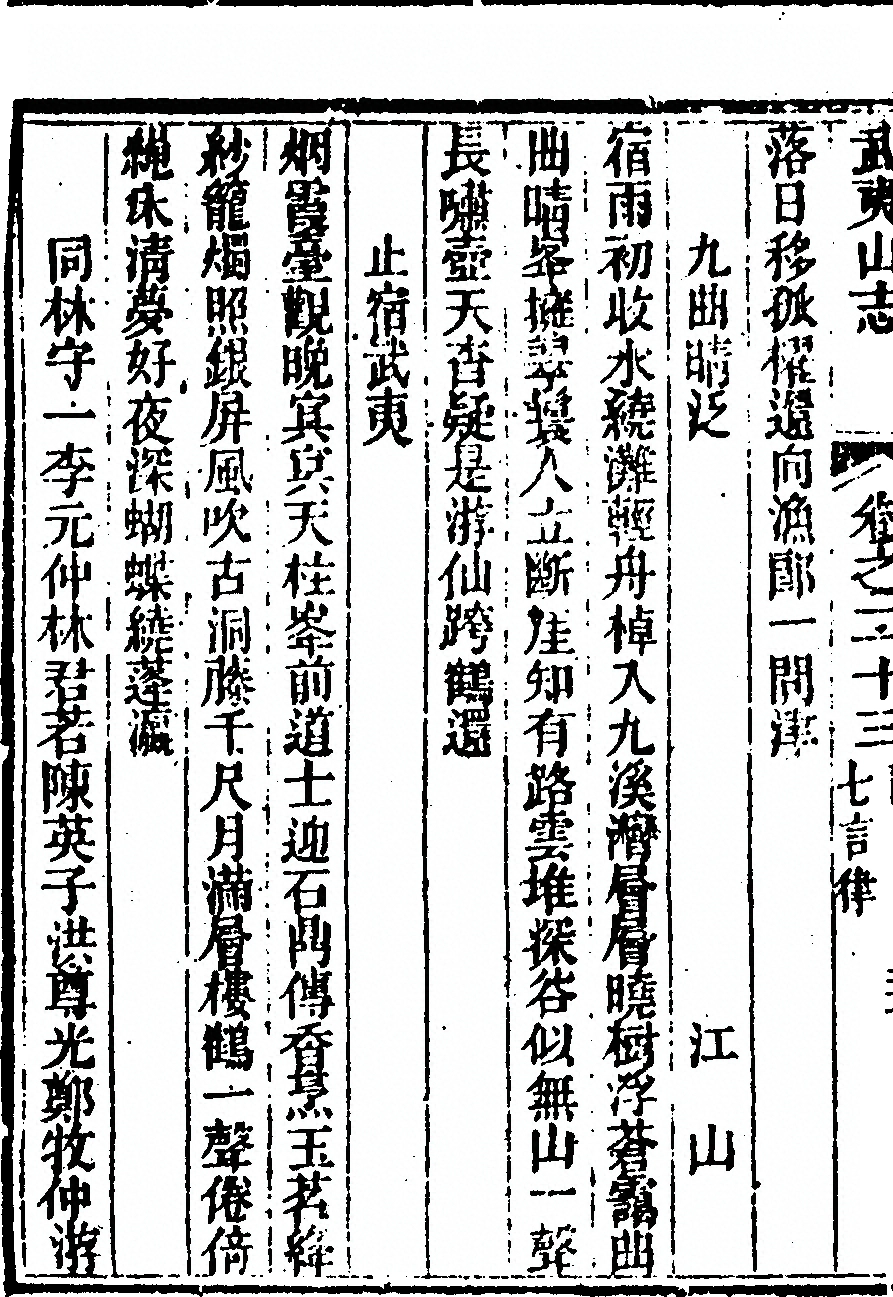 武夷山志 卷之二十三 七言律
落日移孤櫂還向漁郎一問津
九曲晴泛 江山
宿雨初收水繞灘輕舟棹入九溪灣層層曉樹浮蒼靄曲
曲晴峯擁翠鬟人立斷崖知有路雲堆深谷似無山一聲
長嘯壺天杳疑是游仙跨鶴還
止宿武夷
烟霞臺觀晚冥冥天柱峯前道士迎石鼎傳香烹玉茗絳
紗籠燭照銀屏風吹古洞藤千尺月滿層樓鶴一聲倦倚
繩牀清夢好夜深蝴蝶繞蓬瀛
同林守一李元仲林君若陳英子洪尊光鄭牧仲游